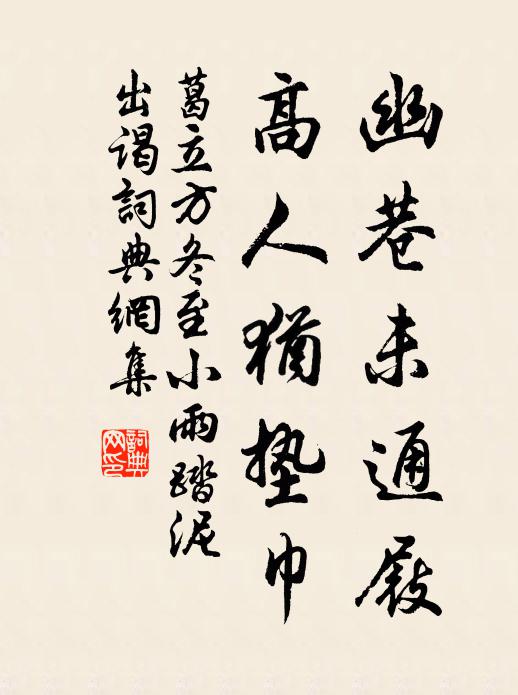 幽巷未通屐
高人猶墊巾
葛立方冬至小雨踏泥
出謁詞典網集
詞典
网